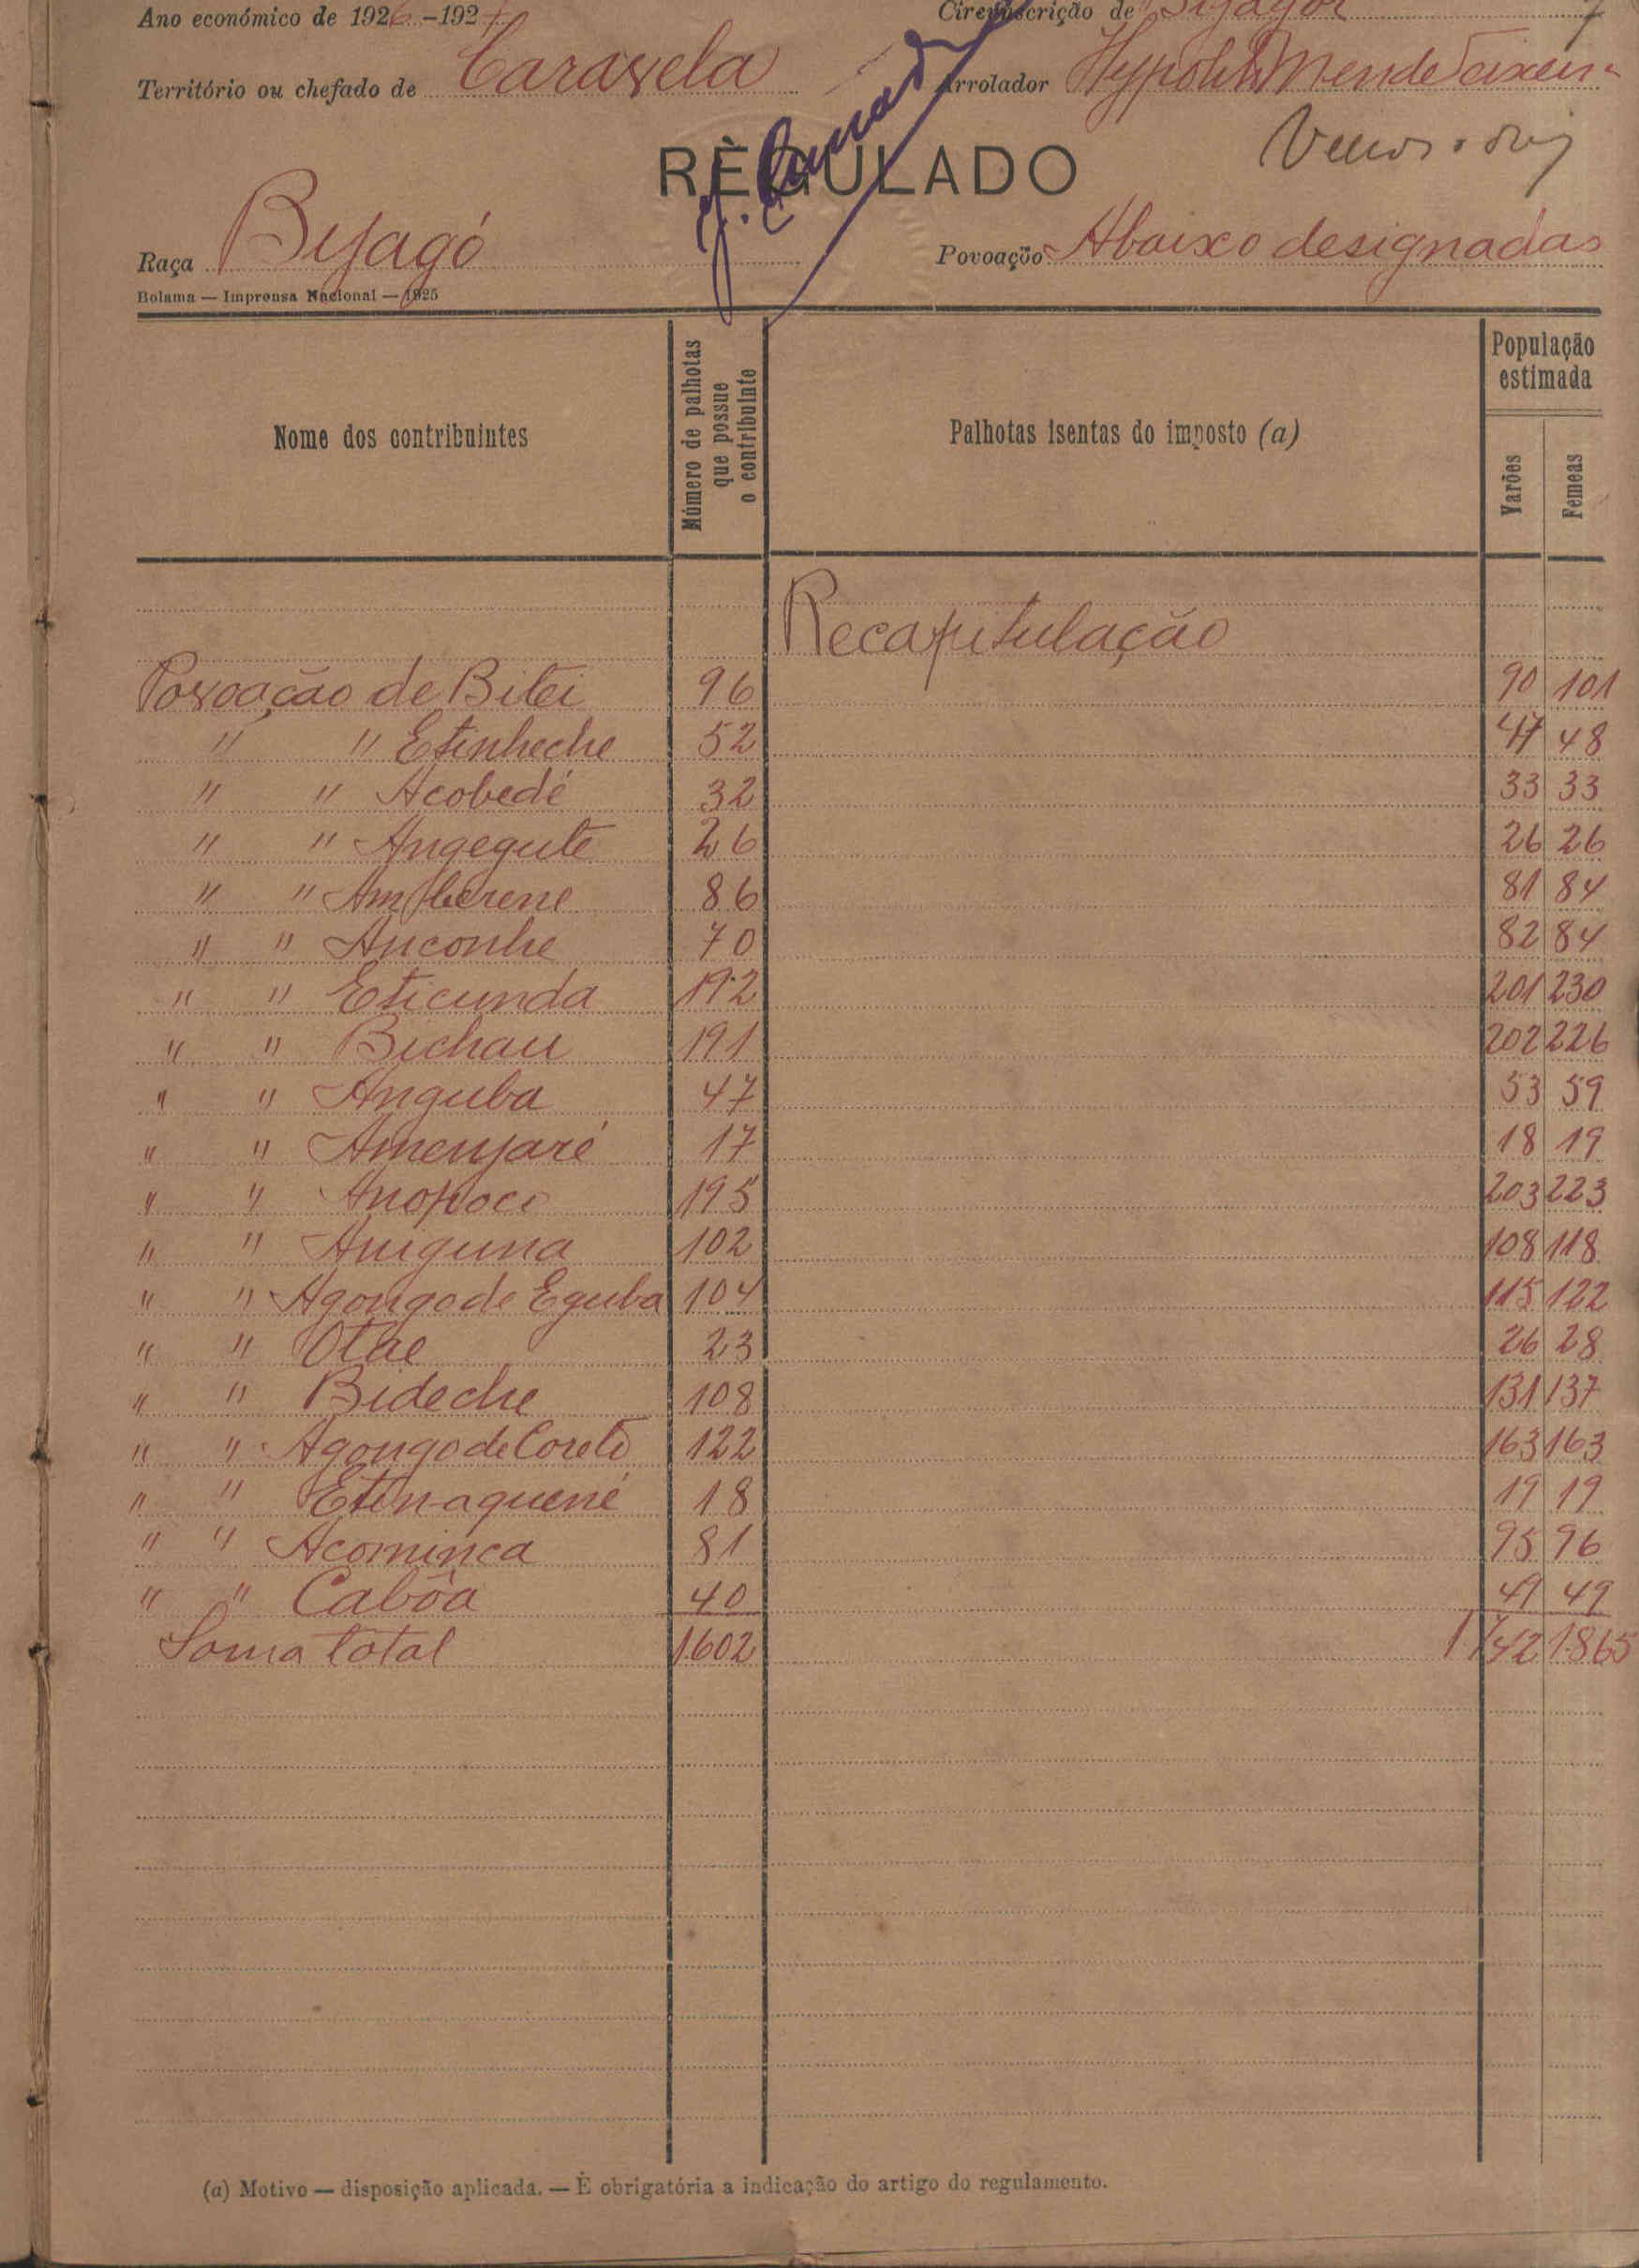 Ano económico de 1926-1927 Circunscrição de Bijagós
Território ou chefado de Caravela Arrolador Hypolito Mendes Teixeira
RÈGULADO
Raça Bijagó Povoação Abaixo designadas
Bolama — Imprensa Nacional — 1925
Nome dos contribuintes Número de palhotas que possue o contribuinte Palhotas isentas do imposto (a) População estimada Varões Femeas
Recapitulação
Povoação de Bitei 96 90 101
" " Etinheche 52 47 48
" " Acobedé 32 33 33
" " Angegute 26 26 26
" " Amberene 86 81 84
" " Anconhe 70 82 84
" " Eticunda 192 201 230
" " Bichau 191 202 226
" " Anguba 47 53 59
" " Amenjaré 17 18 19
" " Anopoco 195 203 223
" " Aniguna 102 108 118
" " Agongo de Eguba 104 115 122
" " Otae 23 26 28
" " Bideche 108 131 137
" " Agongo de Coretó 122 163 163
" " Etinaquené 18 19 19
" " Acominca 81 95 96
" " Cabôa 40 49 49
Soma total 1602 1742 1865
(a) Motivo — disposição aplicada. — É obrigatória a indicação do artigo do regulamento.